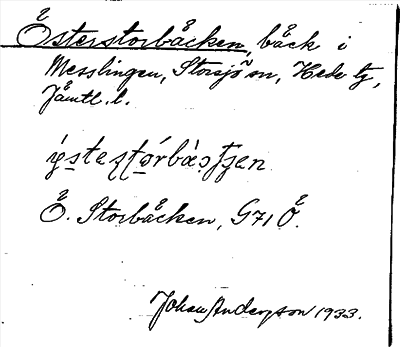 Österstorbäcken, bäck i
Messlingen, Storsjö sn, Hede tg,
Jämtl. l.
Ö. Storbäcken, G 71 Ö.
Johan Anderson 1933.